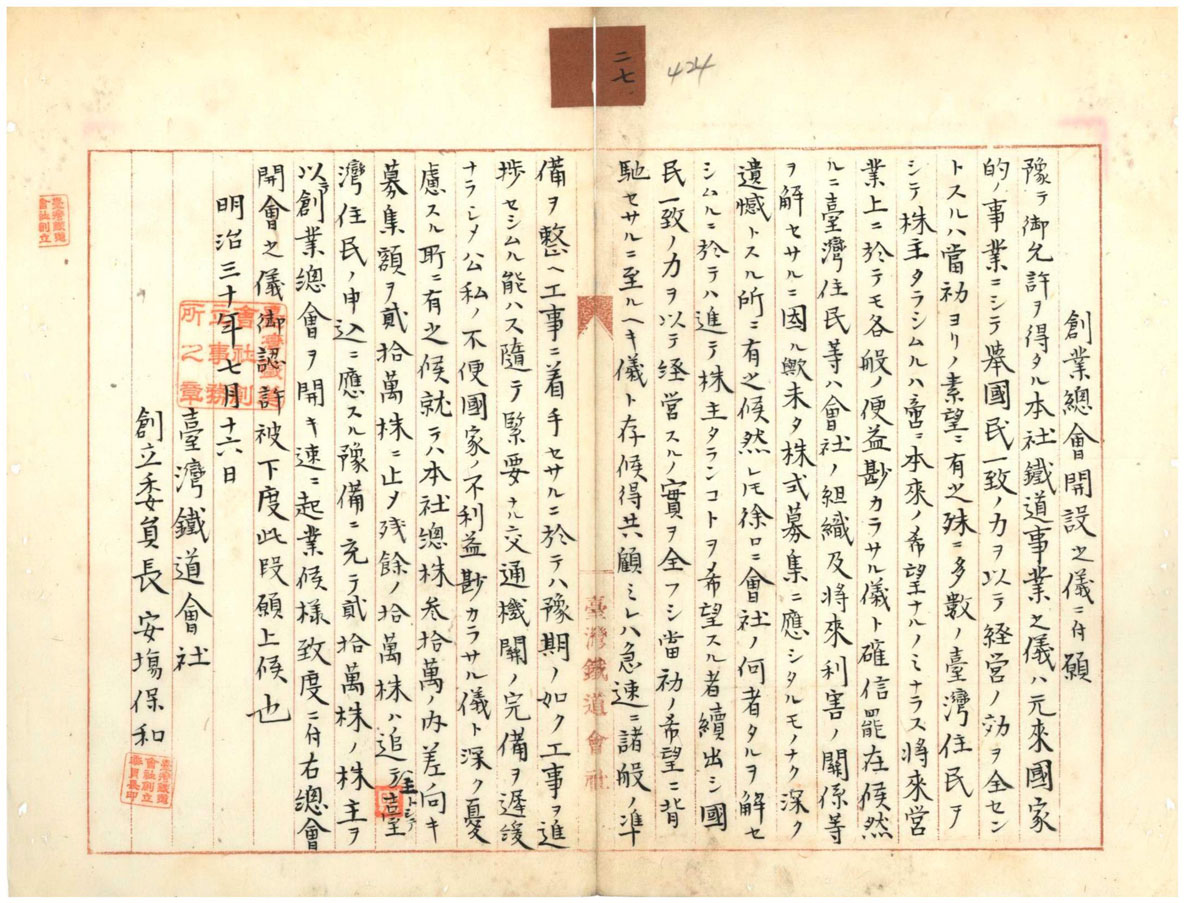 二七.
424
創業總會開設之儀ニ付願
豫テ御允許ヲ得タル本社鐵道事業之儀ハ元來國家
的ノ事業ニシテ擧國民一致ノ力ヲ以テ経営ノ効ヲ全セン
トスルハ當初ヨリノ素望ニ有之殊ニ多數ノ臺灣住民ヲ
シテ株主タラシムルハ啻ニ本來ノ希望ナルノミナラス將來営
業上ニ於テモ各般ノ便益尠カラサル儀ト確信罷在候然
ルニ臺灣住民等ハ會社ノ組織及將來利害ノ關係等
ヲ解セサルニ因ル歟未タ株式募集ニ應シタルモノナク深ク
遺憾トスル所ニ有之候然レモ徐ロニ會社ノ何者タルヲ解セ
シムルニ於テハ進テ株主タランコトヲ希望スル者續出シ國
民一致ノ力ヲ以テ経営スルノ實ヲ全フシ當初ノ希望ニ背
馳セサルニ至ルヘキ儀ト存候得共顧ミレハ急速ニ諸般ノ準
臺灣鐵道會社
備ヲ整ヘ工事ニ着手セサルニ於テハ豫期ノ如ク工事ヲ進
捗セシムル能ハス隨テ緊要ナル交通機關ノ完備ヲ遅緩
ナラシメ公私ノ不便國家ノ不利益尠カラサル儀ト深ク憂
慮スル所ニ有之候就テハ本社總株叁拾萬ノ内差向キ
募集額ヲ貳拾萬株ニ止メ残餘ノ拾萬株ハ追テ主トシテ臺
灣住民ノ申込ニ應スル豫備ニ充テ貳拾萬株ノ株主ヲ
以テ創業總會ヲ開キ速ニ起業候様致度ニ付右總會
開會之儀御認許被下度此段願上候也
明治三十年七月十六日
臺灣鐵道會社
創立委員長 安塲保和
臺灣鐵道會社創立事務所之章